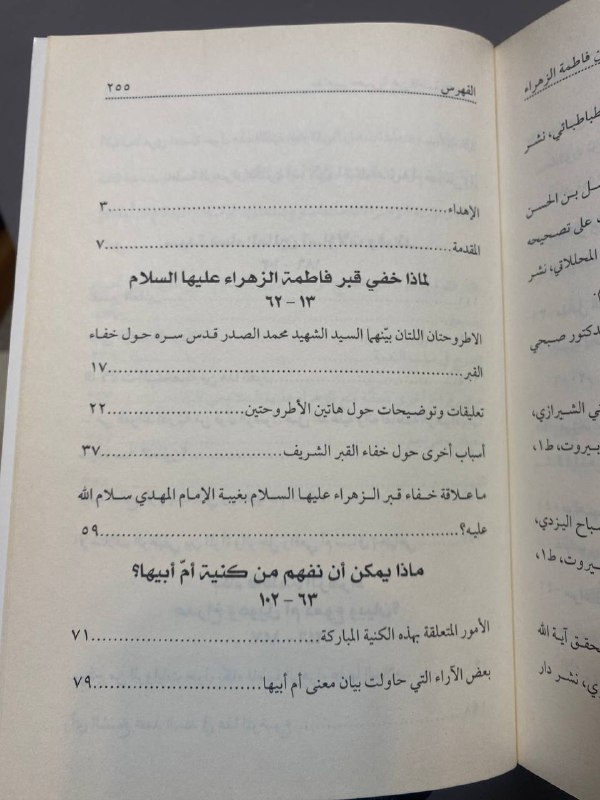 الفهرس ٢٥٥
الإهداء ٣
المقدمة ٧
لماذا خفي قبر فاطمة الزهراء عليها السلام
١٣ – ٦٢
الاطروحتان اللتان بيّنهما السيد الشهيد محمد الصدر قدس سره حول خفاء
القبر ١٧
تعليقات وتوضيحات حول هاتين الأطروحتين ٢٢
أسباب أخرى حول خفاء القبر الشريف ٣٧
ما علاقة خفاء قبر الزهراء عليها السلام بغيبة الإمام المهدي سلام الله
عليه؟ ٥٩
ماذا يمكن أن نفهم من كنية أمّ أبيها؟
٦٣ – ١٠٢
الأمور المتعلقة بهذه الكنية المباركة ٧١
بعض الآراء التي حاولت بيان معنى أم أبيها ٧٩
فاطمة الزهراء
طباطبائي، نشر
بن الحسن
على تصحيحه
المحلاتي، نشر
دكتور صبحي
الشيرازي،
بيروت، ط١،
صباح اليزدي،
بيروت، ط١،
تحقيق آية الله
نشر دار